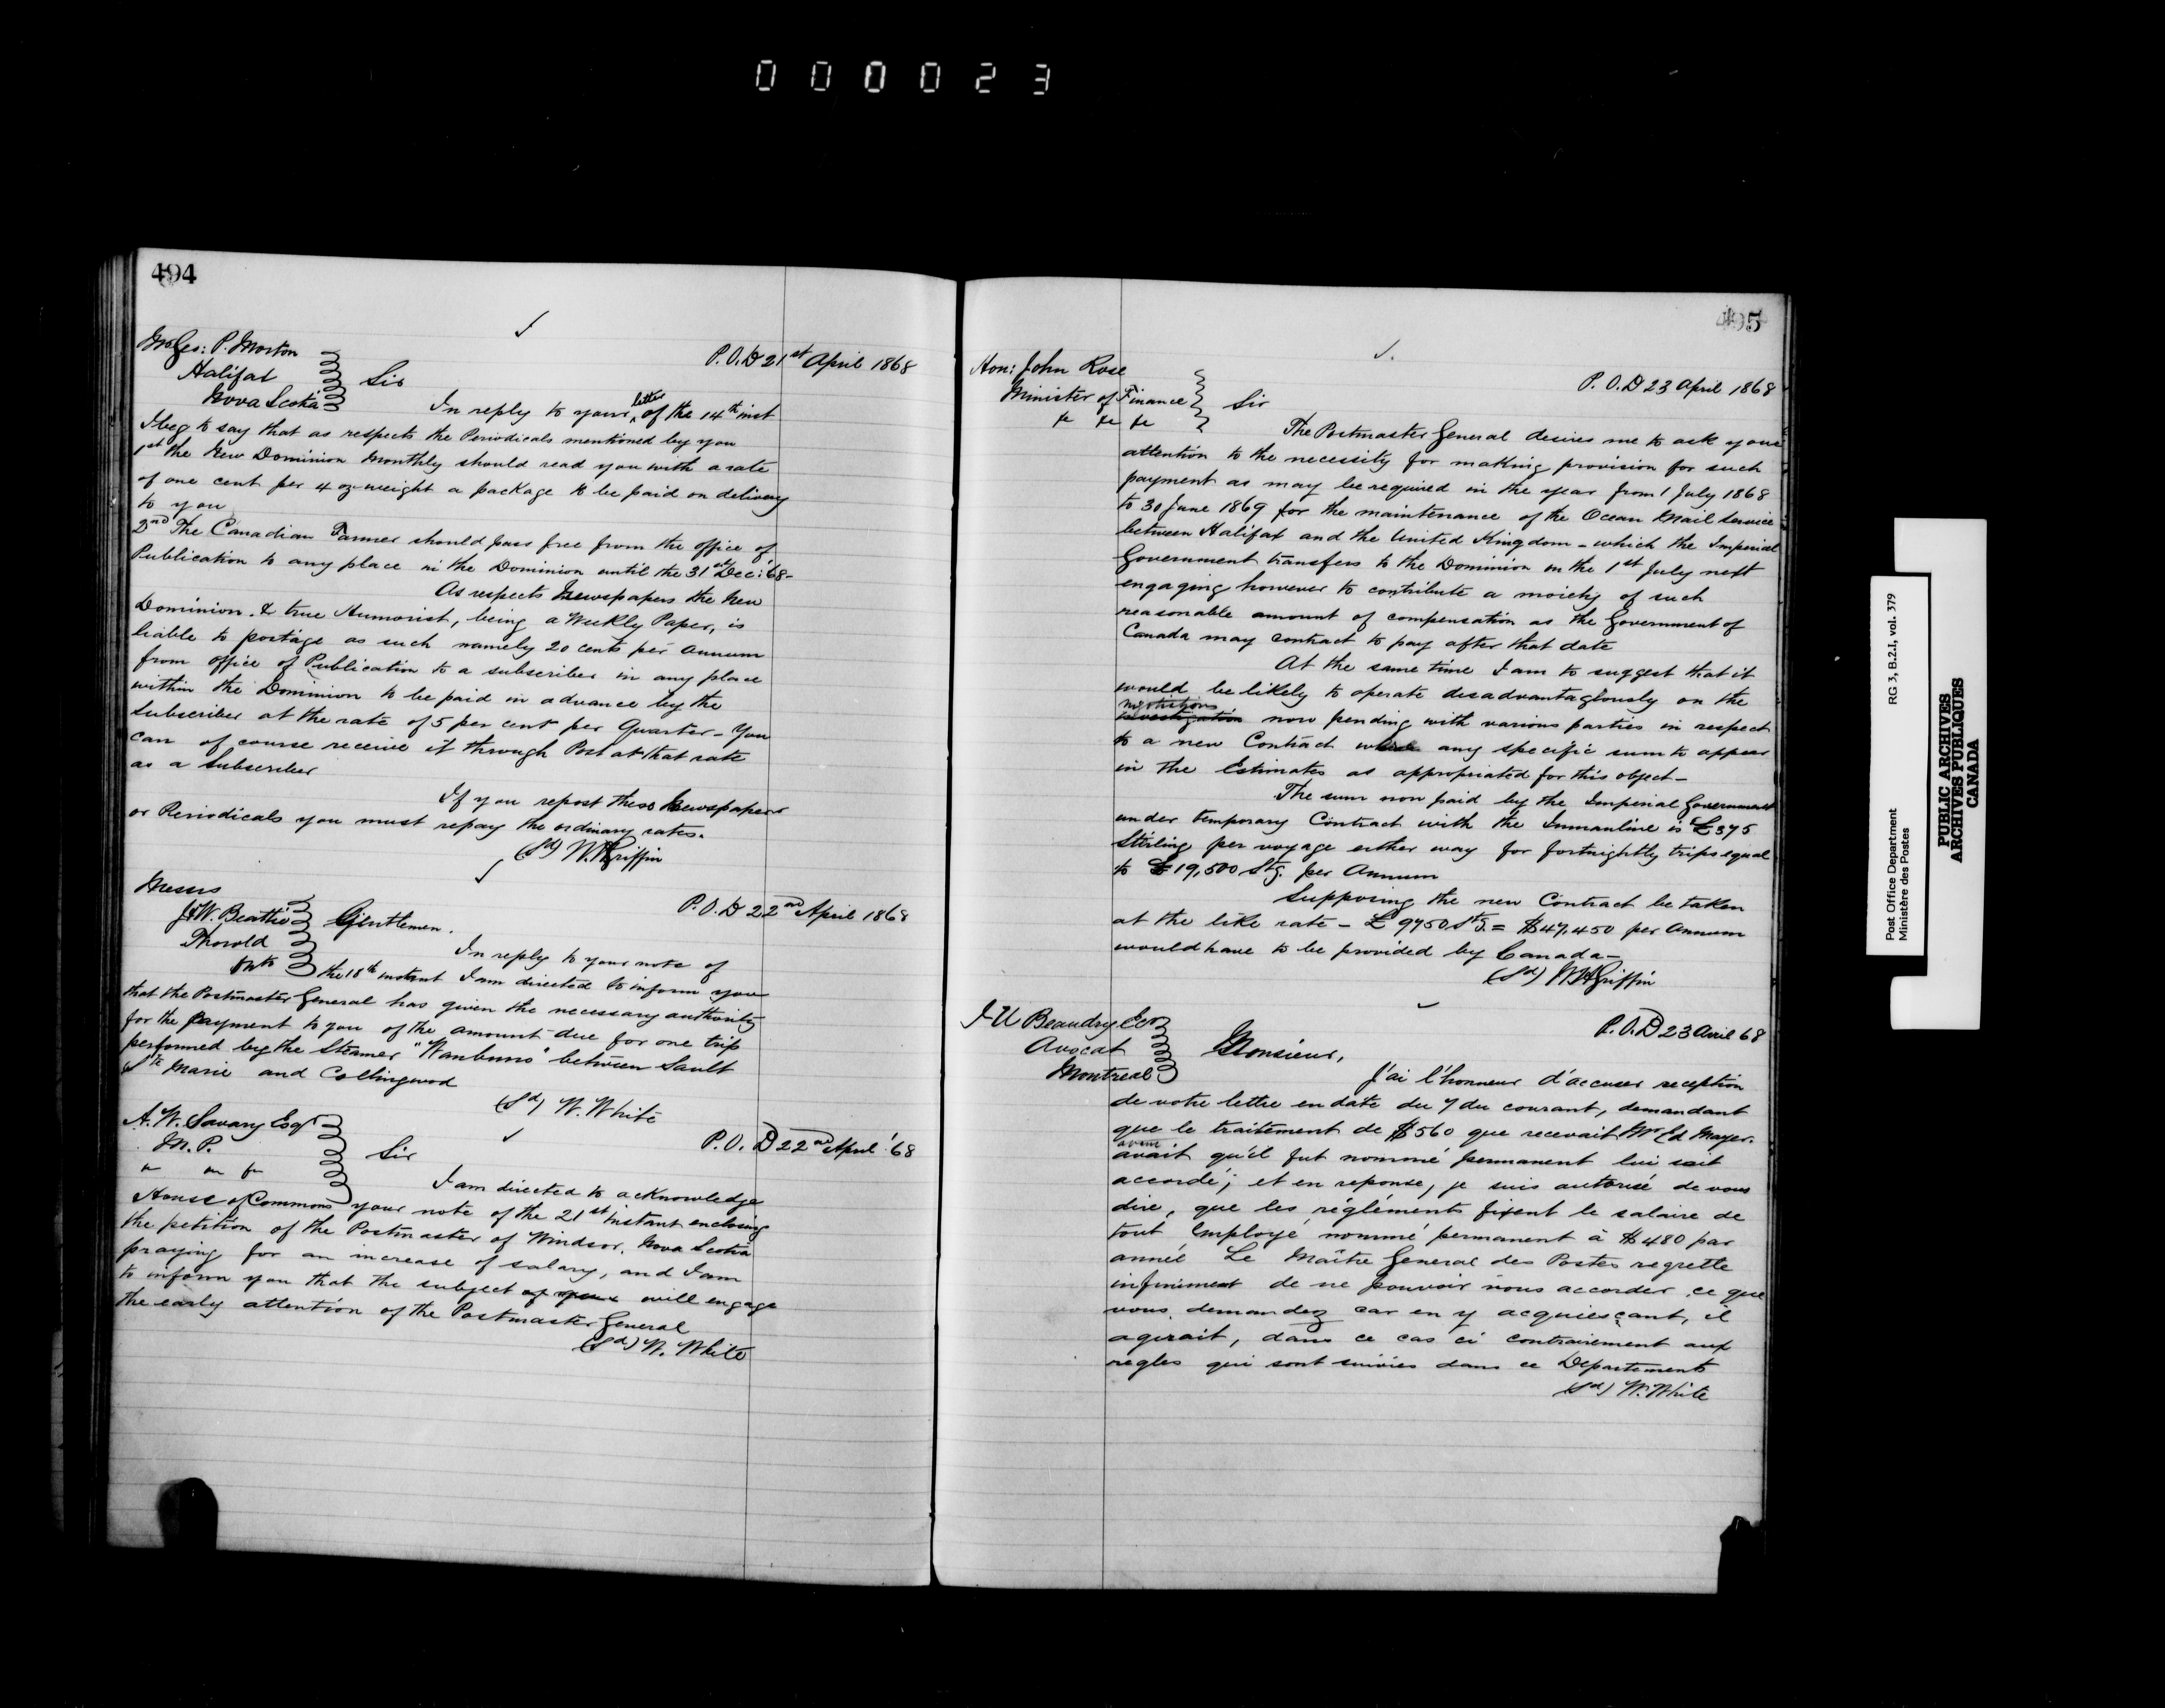 000023
494
Mr Geo: P. Morton
Halifax
Nova Scotia
P.O.D 21st April 1868
Sir
In reply to your letter of the 14th inst
I beg to say that as respects the Periodicals mentioned by you
1st the New Dominion Monthly should read you with a rate
of one cent per 4 oz weight a package to be paid on delivery
to you
2nd The Canadian Farmer should pass free from the office of
Publication to any place in the Dominion until the 31st Dec: 68-
As respects Newspapers the New
Dominion & true Humorist, being a Weekly Paper, is
liable to postage as such namely 20 cents per annum
from office of Publication to a subscriber in any place
within the Dominion to be paid in advance by the
Subscriber at the rate of 5 per cent per Quarter - You
can of course receive it through Post at that rate
as a Subscriber
If you repost these Newspapers
or Periodicals you must repay the ordinary rates.
(Sd) W.H. Griffin
Messrs
J & W. Beattie
Thorold
Onto
P.O.D 22nd April 1868
Gentlemen.
In reply to your note of
the 18th instant I am directed to inform you
that the Postmaster General has given the necessary authority
for the payment to you of the amount due for one trip
performed by the Steamer "Wanbuno" between Sault
Ste Marie and Collingwood
(Sd) W. White
A. W. Savary Esqr
M.P.
P.O.D 22nd April '68
Sir
I am directed to acknowledge
House of Commons your note of the 21st instant enclosing
the petition of the Postmaster of Windsor, Nova Scotia
praying for an increase of salary, and I am
to inform you that the subject will engage
the early attention of the Postmaster General
(Sd) W. White
495
Hon: John Rose
Minister of Finance
&c &c &c
P.O.D 23 April 1868
Sir
The Postmaster General desires me to ask your
attention to the necessity for making provision for such
payment as may be required in the year from 1 July 1868
to 30 June 1869 for the maintenance of the Ocean Mail Service
between Halifax and the United Kingdom - which the Imperial
Government transfers to the Dominion on the 1st July next
engaging however to contribute a moiety of such
reasonable amount of compensation as the Government of
Canada may contract to pay after that date
At the same time I am to suggest that it
would be likely to operate disadvantageously on the
negotiations
investigation now pending with various parties in respect
to a new Contract any specific sum to appear
in the Estimates as appropriated for this object -
The sum now paid by the Imperial Government
under temporary Contract with the Inman line is £375
Sterling per voyage either way for fortnightly trips equal
to £19,500 Stg. per Annum
Supposing the new Contract be taken
at the like rate - £9750 Stg. = $47,450 per Annum
would have to be provided by Canada -
(Sd) W H Griffin
J U Beaudry Ecr
Avocat
Montreal
P.O.D 23 Avril 68
Monsieur,
J'ai l'honneur d'accuser reception
de votre lettre en date du 7 du courant, demandant
que le traitement de $560 que recevait Mr Ed Mayer.
avant
avait qu'il fut nommé permanent lui soit
accordé; et en reponse, je suis autorisé de vous
dire, que les règléments fixent le salaire de
tout Employé nommé permanent à $480 par
année Le Maître General des Postes regrette
infiniment de ne pouvoir vous accorder ce que
vous demandez car en y acquiesçant, il
agirait, dans ce cas ci contrairement aux
regles qui sont suivies dans ce Departement
(Sd) W. White
Post Office Department
Ministère des Postes
RG 3, B.2.I, vol. 379
PUBLIC ARCHIVES
ARCHIVES PUBLIQUES
CANADA